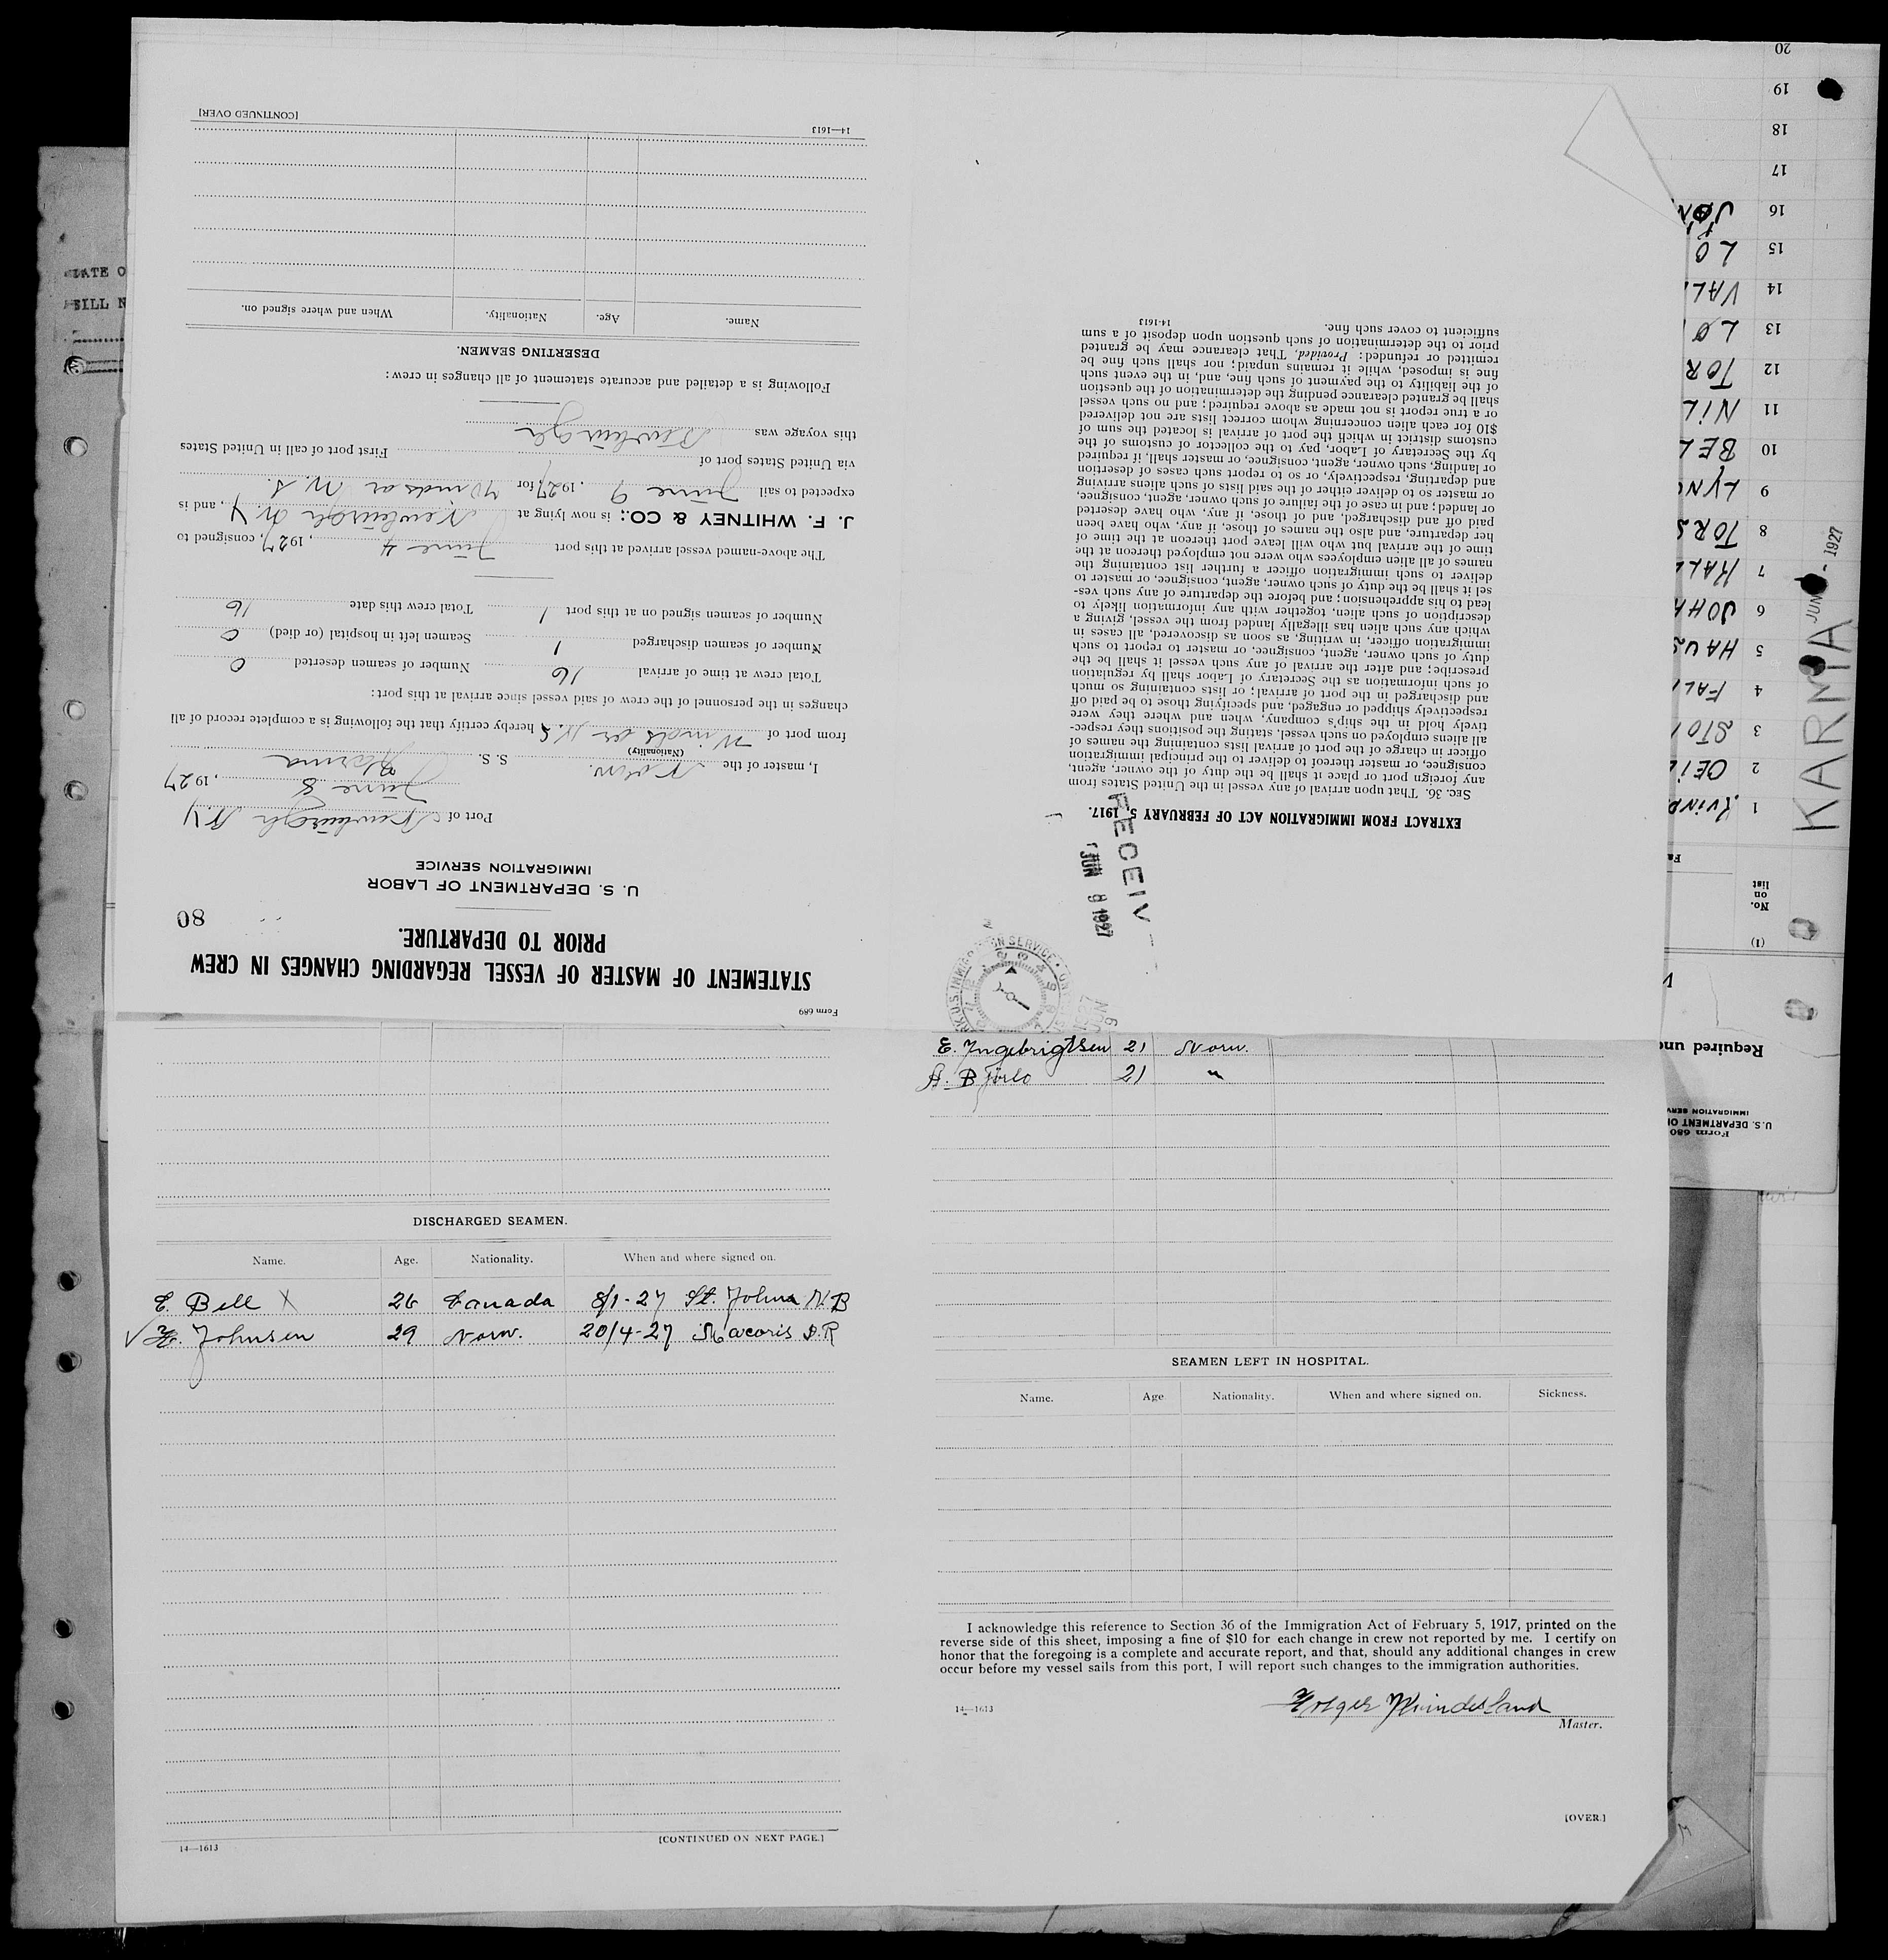 Form 689
STATEMENT OF MASTER OF VESSEL REGARDING CHANGES IN CREW
PRIOR TO DEPARTURE.
80
U. S. DEPARTMENT OF LABOR
IMMIGRATION SERVICE
Port of Newburgh N.Y
June 8, 1927
I, master of the Norw. S. S. Karma
(Nationality)
from port of Windsor N.S. hereby certify that the following is a complete record of all
changes in the personnel of the crew of said vessel since arrival at this port:
Total crew at time of arrival 16 Number of seamen deserted 0
Number of seamen discharged 1 Seamen left in hospital (or died) 0
Number of seamen signed on at this port 1 Total crew this date 16
The above-named vessel arrived at this port June 4, 1927, consigned to
J. F. WHITNEY & CO.: is now lying at Newburgh N.Y, and is
expected to sail June 9, 1927, for Windsor N.S.
via United States port of First port of call in United States
this voyage was Newburgh
Following is a detailed and accurate statement of all changes in crew:
DESERTING SEAMEN.
Name. Age. Nationality. When and where signed on.
14—1613 [CONTINUED OVER]
EXTRACT FROM IMMIGRATION ACT OF FEBRUARY 5, 1917.
SEC. 36. That upon arrival of any vessel in the United States from
any foreign port or place it shall be the duty of the owner, agent,
consignee, or master thereof to deliver to the principal immigration
officer in charge of the port of arrival lists containing the names of
all aliens employed on such vessel, stating the positions they respec-
tively hold in the ship's company, when and where they were
respectively shipped or engaged, and specifying those to be paid off
and discharged in the port of arrival; or lists containing so much
of such information as the Secretary of Labor shall by regulation
prescribe; and after the arrival of any such vessel it shall be the
duty of such owner, agent, consignee, or master to report to such
immigration officer, in writing, as soon as discovered, all cases in
which any such alien has illegally landed from the vessel, giving a
description of such alien, together with any information likely to
lead to his apprehension; and before the departure of any such ves-
sel it shall be the duty of such owner, agent, consignee, or master to
deliver to such immigration officer a further list containing the
names of all alien employees who were not employed thereon at the
time of the arrival but who will leave port thereon at the time of
her departure, and also the names of those, if any, who have been
paid off and discharged, and of those, if any, who have deserted
or landed; and in case of the failure of such owner, agent, consignee,
or master so to deliver either of the said lists of such aliens arriving
and departing, respectively, or so to report such cases of desertion
or landing, such owner, agent, consignee, or master shall, if required
by the Secretary of Labor, pay to the collector of customs of the
customs district in which the port of arrival is located the sum of
$10 for each alien concerning whom correct lists are not delivered
or a true report is not made as above required; and no such vessel
shall be granted clearance pending the determination of the question
of the liability to the payment of such fine, and, in the event such
fine is imposed, while it remains unpaid; nor shall such fine be
remitted or refunded: Provided, That clearance may be granted
prior to the determination of such question upon deposit of a sum
sufficient to cover such fine.
14-1613
RECEIV
JUN 9 1927
DISCHARGED SEAMEN.
Name. Age. Nationality. When and where signed on.
E. Bell X 26 Canada 8/1-27 St. Johns N.B
✓ H. Johnsen 29 Norw. 20/4-27 Macoris D.R
14—1613 [CONTINUED ON NEXT PAGE.]
E. Ingebrigtsen 21 Norw.
21 "
SEAMEN LEFT IN HOSPITAL.
Name. Age Nationality. When and where signed on. Sickness.
I acknowledge this reference to Section 36 of the Immigration Act of February 5, 1917, printed on the
reverse side of this sheet, imposing a fine of $10 for each change in crew not reported by me. I certify on
honor that the foregoing is a complete and accurate report, and that, should any additional changes in crew
occur before my vessel sails from this port, I will report such changes to the immigration authorities.
14—1613
Holger
Master.
[OVER.]
Form 680
U.S. DEPARTMENT OF
IMMIGRATION SERV
Required und
(1)
No.
on
list
KARMA
JUN - 1927
1
2 OEI
3 STO
4 FAL
5 HAUS
6 JOHA
7 HALL
8 TORS
9 LYNG
10 BEL
11 NIL
12 TOR
13 LO
14 VAL
15 LO
16 JON
17
18
19
20
DATE O
BILL N